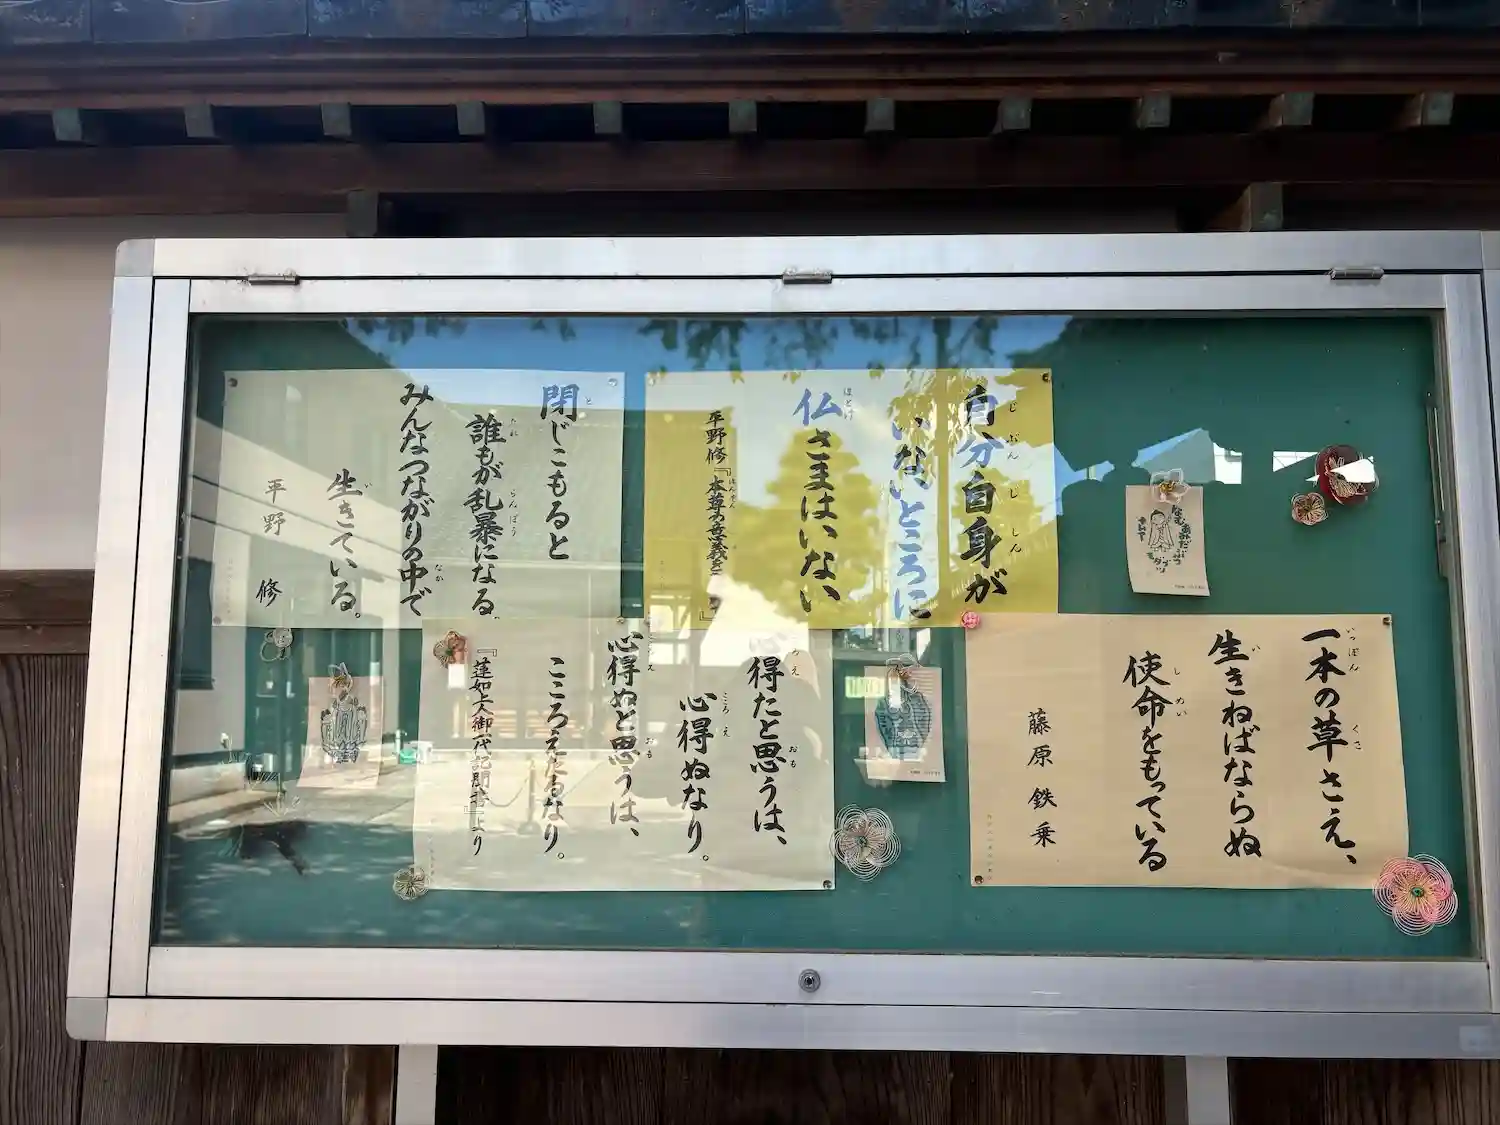 自分自身が
いないところに
仏さまはいない
平野修『本尊の意義を
閉じこもると
誰もが乱暴になる。
みんなつながりの中で
生きている。
平野 修
一本の草さえ、
生きねばならぬ
使命をもっている
藤原鉄乗
得たと思うは、
心得ぬなり。
心得ぬと思うは、
こころえたるなり。
『蓮如上人御一代記聞書』より
なむあみだぶつ